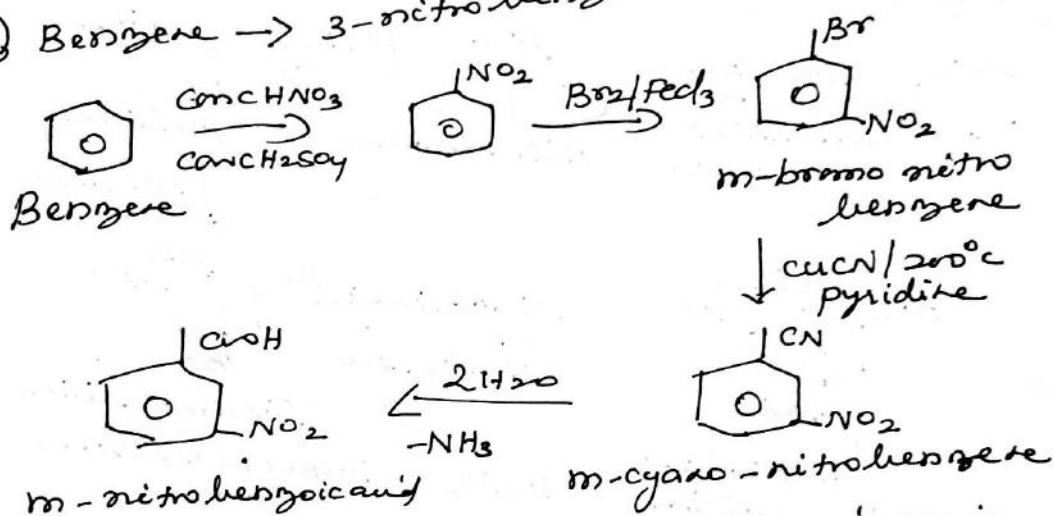 Benzene → 3-nitro
Conc HNO3
Conc H2SO4
NO2
Br2/FeCl3
Br
NO2
Benzene
m-bromo nitro
benzene
CuCN/200°C
pyridine
COOH
NO2
2H2O
-NH3
CN
NO2
m-nitrobenzoicacid
m-cyano-nitrobenzene